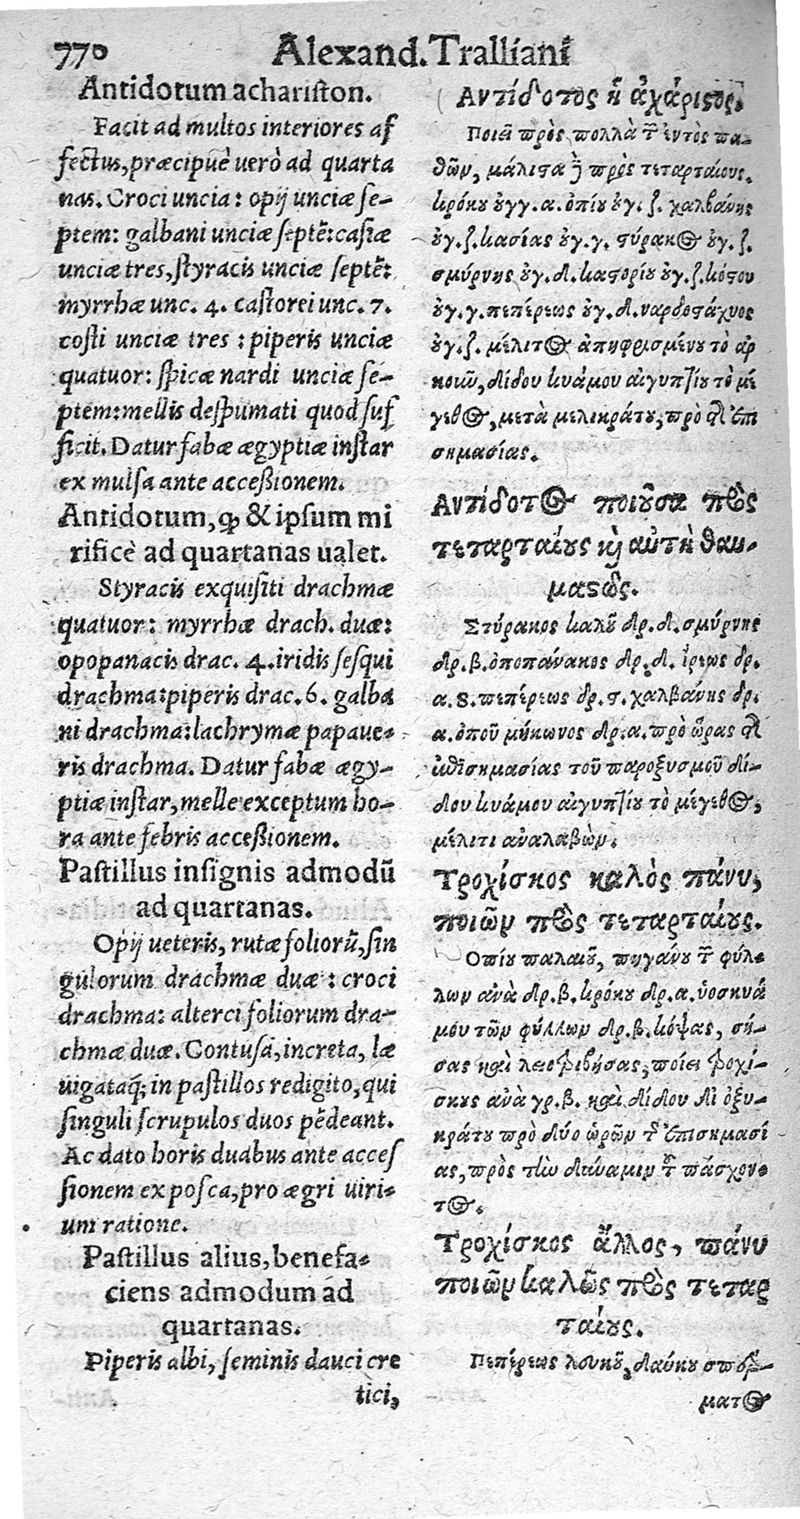 770 Alexand. Tralliani
Antidotum achariston.
Facit ad multos interiores af
fectus, præcipuè uerò ad quarta
nas. Croci uncia: opij unciæ se-
ptem: galbani unciæ septē: casiæ
unciæ tres, styracis unciæ septē:
myrrhæ unc. 4. castorei unc. 7.
costi unciæ tres : piperis unciæ
quatuor: spicæ nardi unciæ se-
ptem: mellis despumati quod suf
ficit. Datur fabæ ægyptiæ instar
ex mulsa ante accessionem.
Antidotum, qđ & ipsum mi
rificè ad quartanas ualet.
Styracis exquisiti drachmæ
quatuor: myrrhæ drach. duæ:
opopanacis drac. 4. iridis sesqui
drachma: piperis drac. 6. galba
ni drachma: lachrymæ papaue-
ris drachma. Datur fabæ ægy-
ptiæ instar, melle exceptum ho-
ra ante febris accessionem.
Pastillus insignis admodū
ad quartanas.
Opij ueteris, rutæ foliorū, sin
gulorum drachmæ duæ : croci
drachma: alterci foliorum dra-
chmæ duæ. Contusa, increta, læ
uigataq; in pastillos redigito, qui
singuli scrupulos duos pēdeant.
Ac dato horis duabus ante acces
sionem ex posca, pro ægri uiri-
um ratione.
Pastillus alius, benefa-
ciens admodum ad
quartanas.
Piperis albi, seminis dauci cre
tici,
Αντίδοτος ἡ ἀχάριστος.
Ποιεῖ πρὸς πολλὰ τῶν ἐντὸς πα-
θῶν, μάλιστα δὲ πρὸς τεταρταίους.
κρόκου ουγγ. α. ὀπίου ουγ. ζ. χαλβάνης
ουγ. ζ. κασίας ουγ. γ. στύρακος ουγ. ζ.
σμύρνης ουγ. δ. καστορίου ουγ. ζ. κόστου
ουγ. γ. πεπέρεως ουγ. δ. ναρδοστάχυος
ουγ. ζ. μέλιτος ἀπηφρισμένου τὸ ἀρ
κοιῶ, δίδου κυάμου αἰγυπτίου τὸ μέ
γεθος, μετὰ μελικράτου, πρὸ τῆς ἐπι
σημασίας.
Αντίδοτος ποιοῦσα πρὸς
τεταρταίους καὶ αὐτὴ θαυ-
μαστῶς.
Στύρακος καλοῦ δρ. δ. σμύρνης
δρ. β. ὀποπάνακος δρ. δ. ἴρεως δρ.
α. S. πεπέρεως δρ. ϛ. χαλβάνης δρ.
α. ὀποῦ μήκωνος δρ. α. πρὸ ὥρας τῆς
ἐπισημασίας τοῦ παροξυσμοῦ δί-
δου κυάμου αἰγυπτίου τὸ μέγεθος,
μέλιτι ἀναλαβὼν.
Τροχίσκος καλὸς πάνυ,
ποιῶν πρὸς τεταρταίους.
Οπίου παλαιοῦ, πηγάνου τῶν φύλ-
λων ἀνὰ δρ. β. κρόκου δρ. α. ὑοσκυά
μου τῶν φύλλων δρ. β. κόψας, σή-
σας καὶ λειοτριβήσας, ποίει τροχί-
σκους ἀνὰ γρ. β. καὶ δίδου δι' ὀξυ-
κράτου πρὸ δύο ὡρῶν τῆς ἐπισημασί
ας, πρὸς τὴν δύναμιν τοῦ πάσχον-
τος.
Τροχίσκος ἄλλος, πάνυ
ποιῶν καλῶς πρὸς τεταρ
ταίους.
Πεπέρεως λευκοῦ, δαύκου σπέρ-
ματος